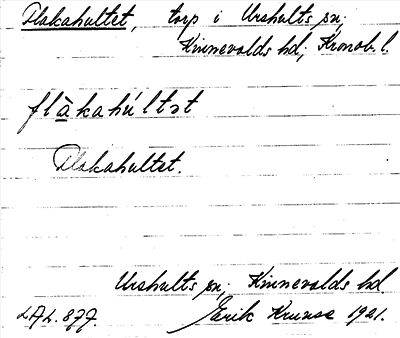 Flakahultet, torp i Urshults sn;
Kinnevalds hd; Kronob. l.
flàkahúltət
Flakahultet.
Urshults sn; Kinnevalds hd.
LAL. 877. Erik Kruuse 1921.